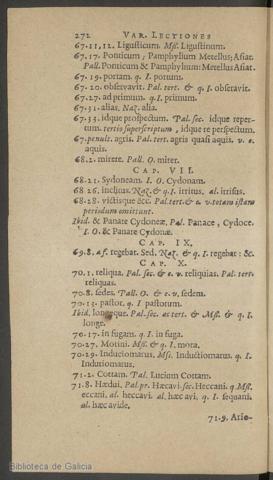 272 VAR. LECTIONES
67.11,12. Ligusticum. Mss. Ligustinum.
67.17. Ponticum, Pamphylium Metellus; Asiat.
Pall. Ponticum & Pamphylium: Metellus Asiat.
67.19. portam. q. I. portum.
67.20. observavit. Pal. tert. & q. I. obseravit.
67.27. ad primum. q. I. primum.
67.31. alias. Naz. alia.
67.33. idque prospectum. Pal. sec. idque repertum.
tum. tertio superscriptum, idque re perspectum.
67. penult. agris. Pal. tert. agris quasi aquis. v. e.
aquis.
68.2. mitete. Pall. O. miter.
CAP. VII.
68.21. Sydoneam. I. O. Cydonam.
68.26. inclusus. Naz. & q. I. irritus. al. irrisus.
68.28. victisque &c. Pal. tert. & e. v. totam istam
periodum omittunt.
Ibid. & Panare Cydoneæ. Pal. Panace, Cydoce.
I. O. & Panare Cydonæ.
CAP. IX.
69.8. af. regebat. Sed. Naz. & q. I. regebat: &c.
CAP. X.
70.1. reliqua. Pal. sec. & e. v. reliquias. Pal. tert.
reliquas.
70.8. sedes. Pall. O. & e. v. sedem.
70.13. pastor. q. I. pastorum.
Ibid. longeque. Pal. sec. as tert. & Mss. & q. I.
longe.
70.17. in fugam. q. I. in fuga.
70.27. Motini. Mss. & q. I. mota.
70.29. Induciomarus. Mss. Inductiomarus. q. I.
Indutiomarus.
71.2. Cottam. Pal. Lucium Cottam.
71.8. Hædui. Pal. pr. Hæcavi. sec. Heccani. q. Mss.
eccani. al. heccavi. al. hæc avi. q. I. sequani.
al. hæc avide.
71.9. Ario-
Biblioteca de Galicia